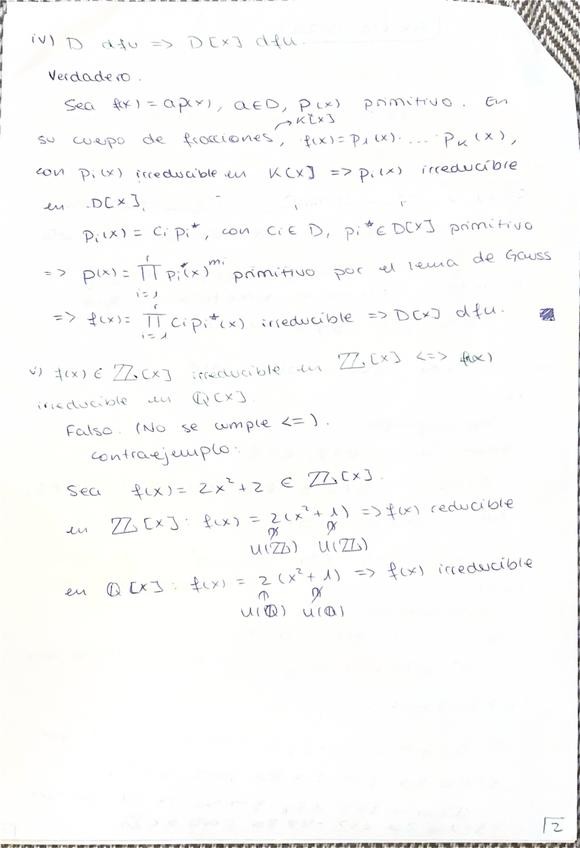 iv) D dfu => D[x] dfu.
Verdadero.
Sea f(x) = ap(x), a∈D, p(x) primitivo. En
su cuerpo de fracciones, f(x) = p₁(x)·...·pₖ(x),
→ K[x]
con pᵢ(x) irreducible en K[x] => pᵢ(x) irreducible
en D[x].
pᵢ(x) = cᵢpᵢ*, con cᵢ∈D, pᵢ*∈D[x] primitivo
=> p(x) = ∏ᵢ₌₁ʳ pᵢ*(x)^mᵢ primitivo por el lema de Gauss
=> f(x) = ∏ᵢ₌₁ʳ cᵢpᵢ*(x) irreducible => D[x] dfu.
v) f(x) ∈ ℤ[x] irreducible en ℤ[x] <=> f(x)
irreducible en ℚ[x].
Falso. (No se cumple <=).
contraejemplo:
Sea f(x) = 2x²+2 ∈ ℤ[x].
en ℤ[x]: f(x) = 2(x²+1) => f(x) reducible
∉ ∉
U(ℤ) U(ℤ)
en ℚ[x]: f(x) = 2(x²+1) => f(x) irreducible
∈ ∉
U(ℚ) U(ℚ)
2